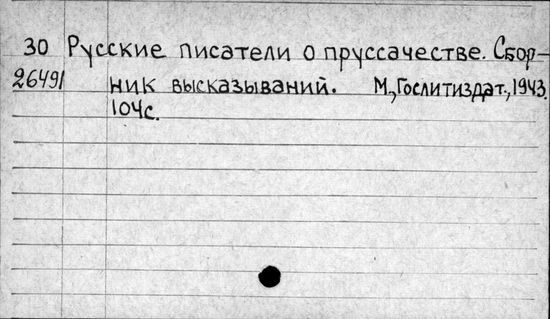 30 Русские писатели о пруссачестве. Сбор-
26491 ник высказываний. М., Гослитиздат., 1943.
104с.